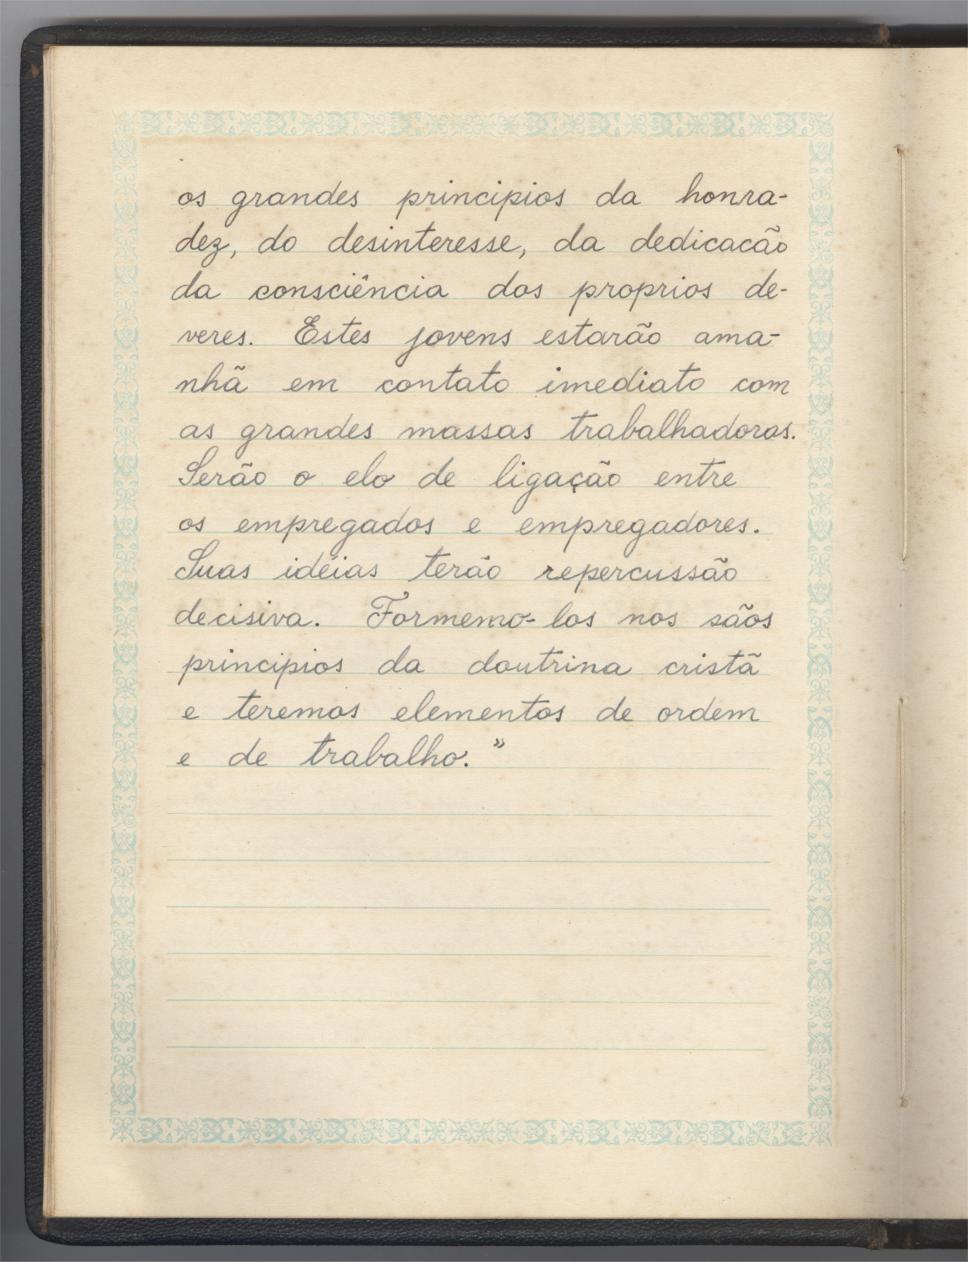 os grandes principios da honra-
dez, do desinteresse, da dedicacão
da consciência dos proprios de-
veres. Estes jovens estarão ama-
nhã em contato imediato com
as grandes massas trabalhadoras.
Serão o elo de ligação entre
os empregados e empregadores.
Suas idéias terão repercussão
decisiva. Formemo-los nos sãos
principios da doutrina cristã
e teremos elementos de ordem
e de trabalho."